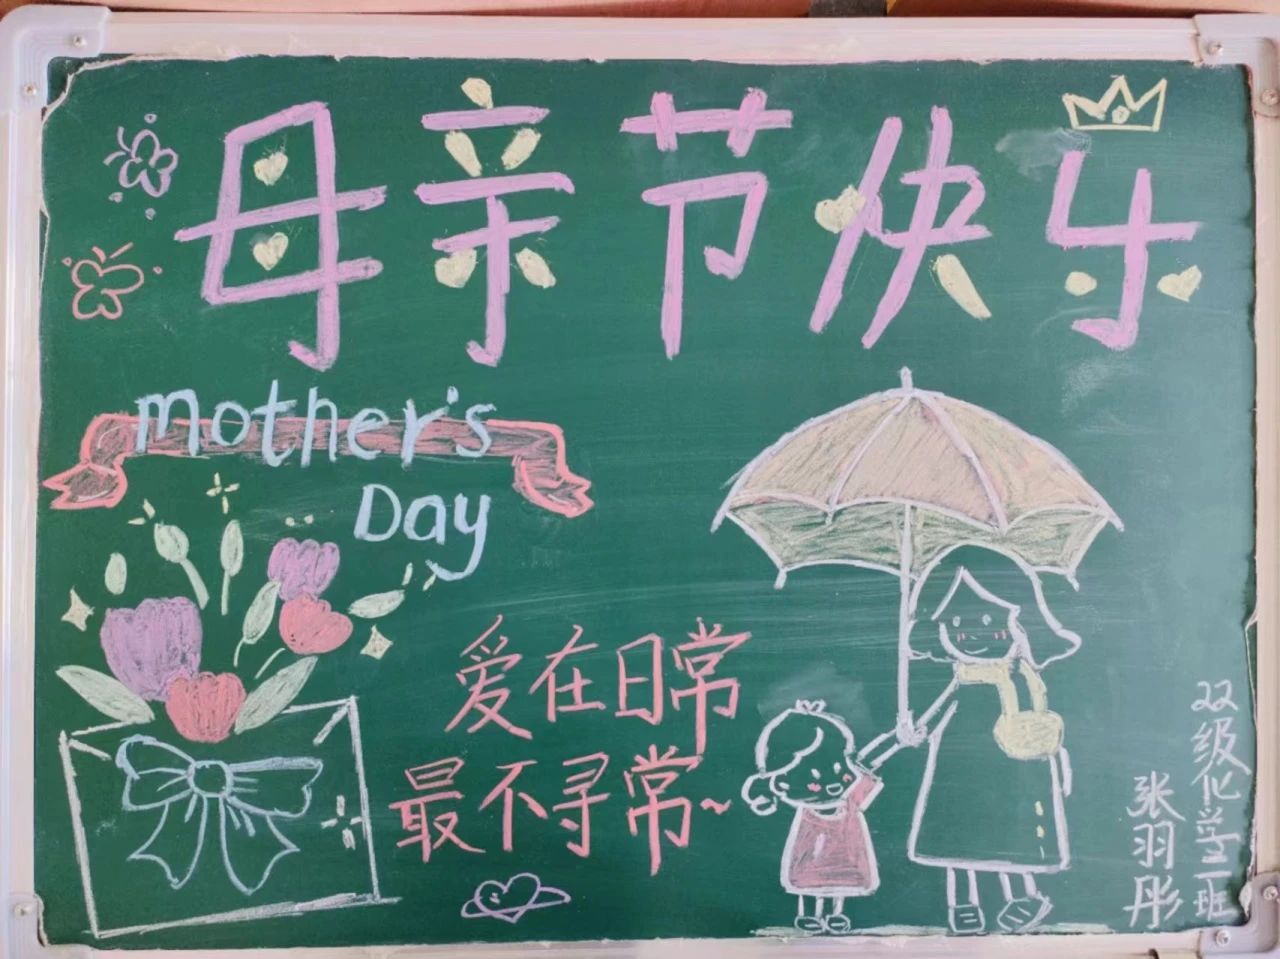 母亲节快乐
mother's
Day
爱在日常
最不寻常~
22级化学一班
张羽彤